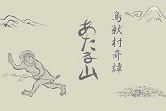 鳥獣村奇譚
あたま山